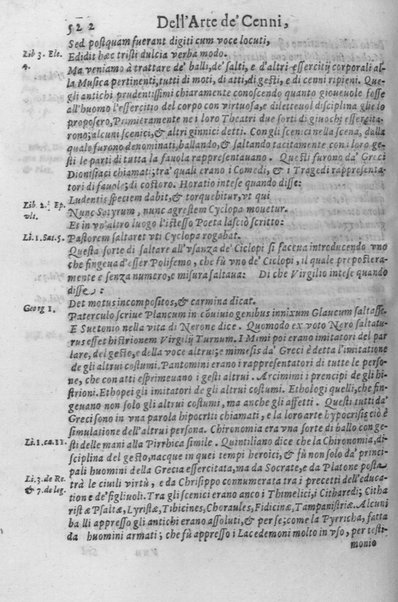 522 Dell'Arte de' Cenni,
Sed postquam fuerant digiti cum voce locuti,
Lib 3. Ele. Edidit hæc tristi dulcia verba modo.
4. Ma veniamo à trattare de' balli, de' salti, e d'altri essercitij corporali al-
la Musica pertinenti, tutti di moti, di atti, di gesti, e di cenni ripieni. Que
gli antichi prudentissimi chiaramente conoscendo quanto gioueuole fosse
all'huomo l'essercitio del corpo con virtuosa, e diletteuol disciplina glie lo
proposero, Primieramente ne i loro Theatri due sorti di giuochi essercita-
rono; alcuni scenici, & altri ginnici detti. Con gli scenici nella scena, dalla
quale furono denominati, ballando, & saltando tacitamente con i loro ge-
sti le parti di tutta la fauola rappresentauano. Questi furono da' Greci
Dionisiaci chiamati; tra' quali erano i Comedi, & i Tragedi rappresenta-
tori di fauole; di costoro. Horatio intese quando disse:
Lib. 2.' Ep. Ludentis speciem dabit, & torquebitur, vt qui
vlt. Nunc Satyrum, nunc agrestem Cyclopa mouetur.
Et in vn'altro luogo l'istesso Poeta lasciò scritto:
Li. 1. Sat. 5. Pastorem saltaret vti Cyclopa rogabat.
Questa sorte di saltare all'vsanza de' Ciclopi si faceua introducendo vno
che fingeua d'esser Polifemo, che fù vno de' Ciclopi, il quale prepostera-
mente e senza numero, e misura saltaua: Di che Virgilio intese quando
disse:
Georg 1. Det motus incompositos, & carmina dicat.
Paterculo scriue Plancum in conuiuio genibus innixum Glaucum saltasse.
E Suetonio nella vita di Nerone dice. Quomodo ex voto Nero saltatu-
rus esset histrionem Virgilij Turnum. I Mimi poi erano imitatori del par
lare, del gesto, e della voce altrui; e mimesis da' Greci è detta l'imitatione
de gli altrui costumi. Pantomini erano i rappresentatori di tutte le perso-
ne, che con atti esprimeuano i gesti altrui. Arcimimi i prencipi de gli hi-
strioni. Ethopei gli imitatori de gli altrui costumi. Ethologi quelli, che fin-
geuano non solo gli altrui costumi, ma anche gli affetti. Questi tutti da'
Greci sono in vna parola hipocriti chiamati, e la loro arte hypocrisis ciò è
simulatione dell'altrui persona. Chironomia era vna sorte di ballo con ge-
Li. 1. ca. 11. sti delle mani alla Pirrhica simile. Quintiliano dice che la Chironomia, di-
sciplina del gesto, nacque in quei tempi heroici, & fù non solo da' princi-
pali huomini della Grecia essercitata, ma da Socrate, e da Platone posta
Li. 3. de Re. trà le ciuili virtù, e da Chrisippo connumerata tra i precetti dell'educa-
& 7. de leg. tione de' figliuoli. Tra gli scenici erano anco i Thimelici, i Citharedi; Citha
ristæ Psaltæ, Lyristæ, Tibicines, Choraules, Fidicinæ, Tampanistriæ. Alcuni
balli appresso gli antichi erano assoluti, & per se; come la Pyrricha, fatta
da huomini armati; che fù appresso i Lacedemoni molto in vso, per testi-
monio